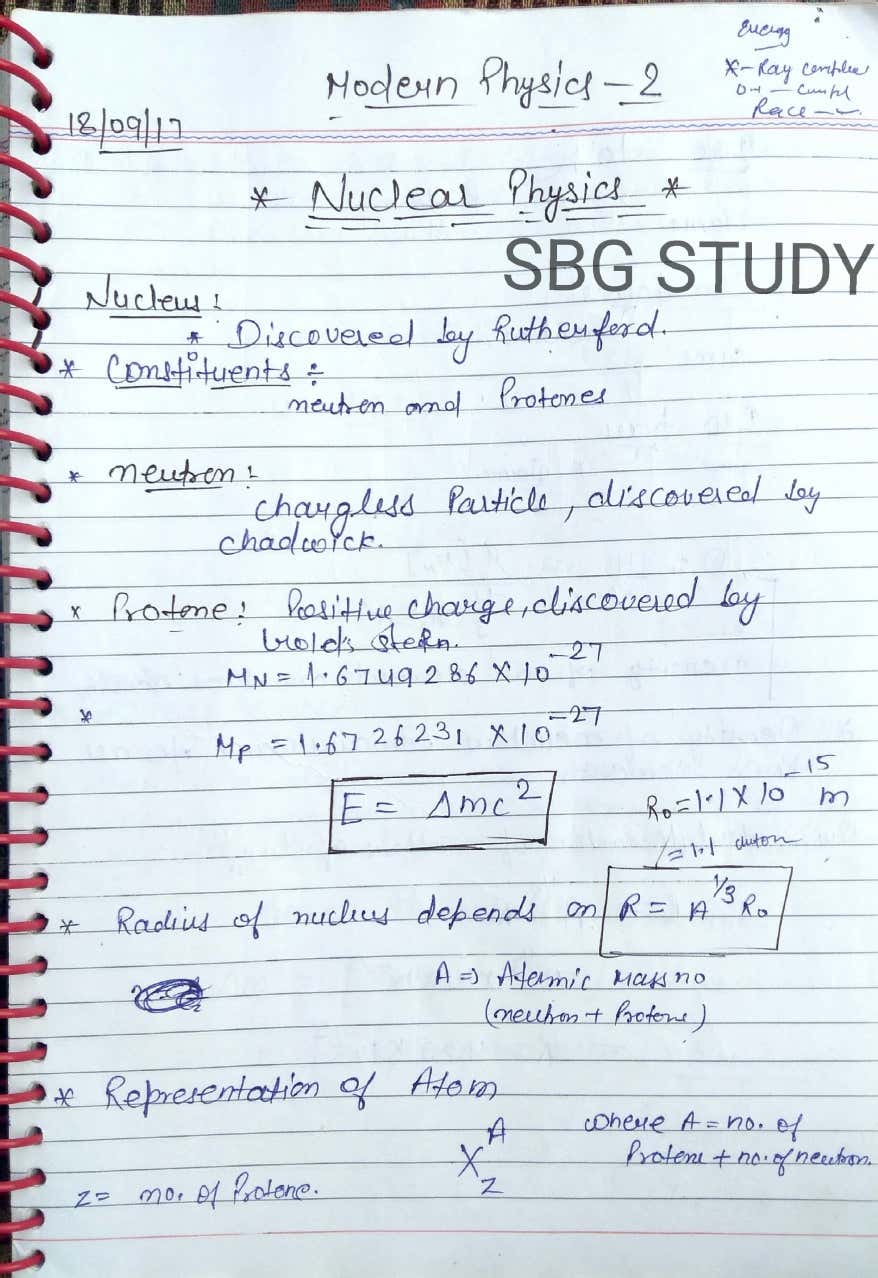 Energy
X-Ray complee
Modern Physics - 2
Race
18/09/17
* Nuclear Physics *
SBG STUDY
Nucleus:
* Discovered by Rutherford.
* Constituents :
neutron and Protones
* neutron :
chargless Particle, discovered by
chadwick.
* Protone: Positive charge, discovered by
Gold stern.
M_N = 1.6749286 × 10^-27
*
M_P = 1.6726231 × 10^-27
E = Δmc²
R₀ = 1.1 × 10^-15 m
= 1.1
* Radius of nucleus depends on R = A^1/3 R₀
A ⇒ Atomic Mass no
(neutron + Protone)
* Representation of Atom
X^A_Z
where A = no. of
Protone + no. of neutron.
Z = no. of Protone.